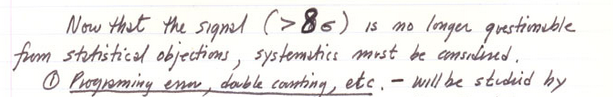 Now that the signal (>8σ) is no longer questionable
from statistical objections, systematics must be considered.
① Programing error, double counting, etc. – will be studied by